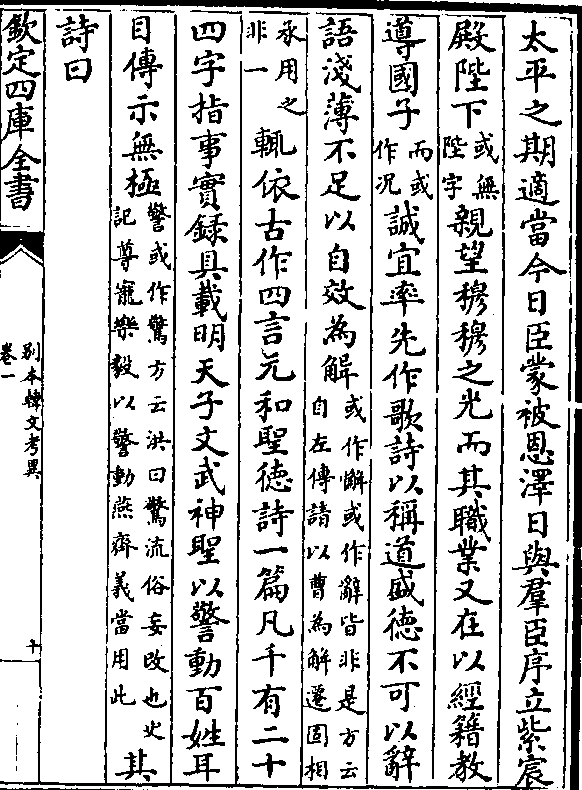 太平之期適當今日臣蒙被恩澤日與羣臣序立紫宸
殿陛下或無陛字親望穆穆之光而其職業又在以經籍教
導國子而或作况誠宜率先作歌詩以稱道盛德不可以辭
語淺薄不足以自效為解或作懈或作辭皆非是方云自左傳諸以曹為解遷固相
承用之非一輒依古作四言元和聖德詩一篇凡千有二十
四字指事實録具載明天子文武神聖以警動百姓耳
目傳示無極警或作驚方云洪曰驚流俗妄改也史記尊寵樂毅以警動燕齊義當用此其
詩曰
欽定四庫全書
别本韓文考異
卷一
十